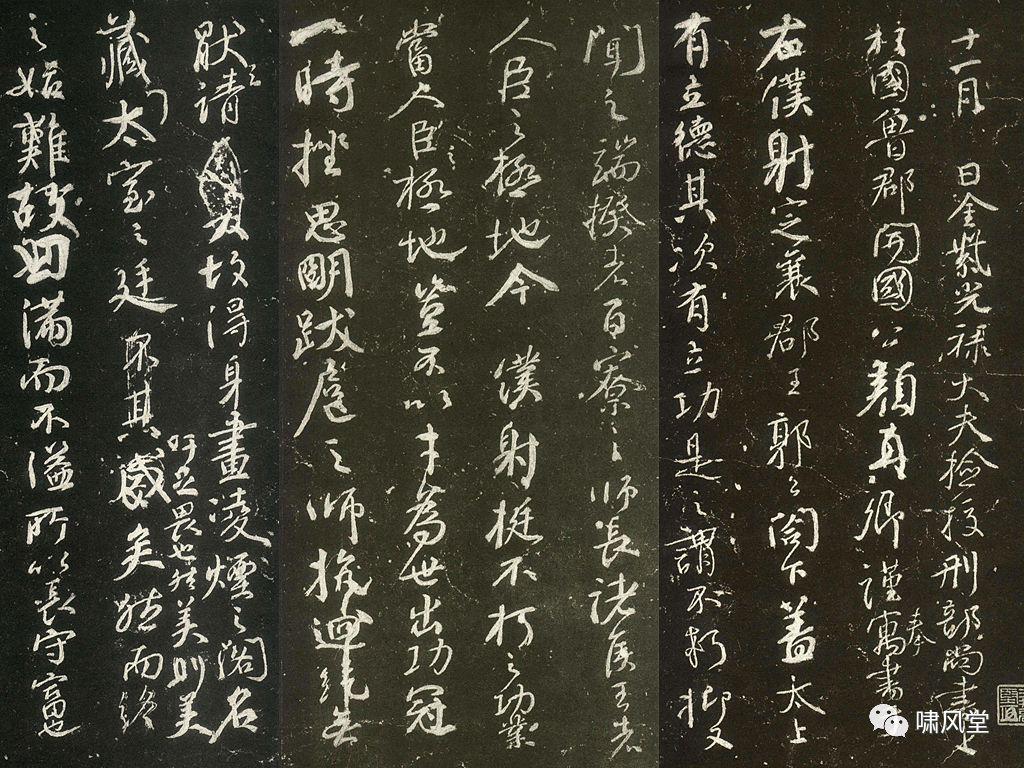 十一月 日金紫光禄大夫檢校刑部尚書上
柱國魯郡開國公顔真卿謹奉寓書
右僕射定襄郡王郭公閤下蓋太上
有立德其次有立功是之謂不朽抑又
聞之端揆者百寮之師長諸侯王者
人臣之極地今僕射挺不朽之功業
當人臣之極地豈不以才為世出功冠
一時挫思明跋扈之師抗迴紇無
厭之請故得身畫凌煙之閣名
藏太室之廷
吁足畏也然美則美
矣然而終
之始難故曰滿而不溢所以長守富也
啸风堂